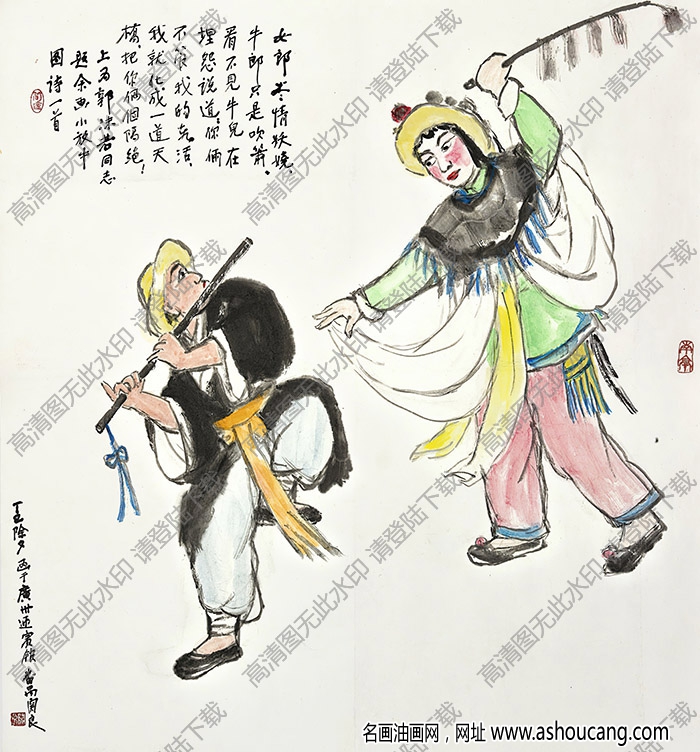 女郎冬情妖娆，
牛郎只是吹箫。
看不见牛儿在
埋怨说道，你俩
不管我的死活，
我就化成一道天
桥，把你俩個隔绝！
上为郭沫若同志
题余画小放牛
图诗一首
除夕画于廣州迎賓館 番禺関良
高清图无此水印 请登陆下载
名画油画网，网址 www.ashoucang.com